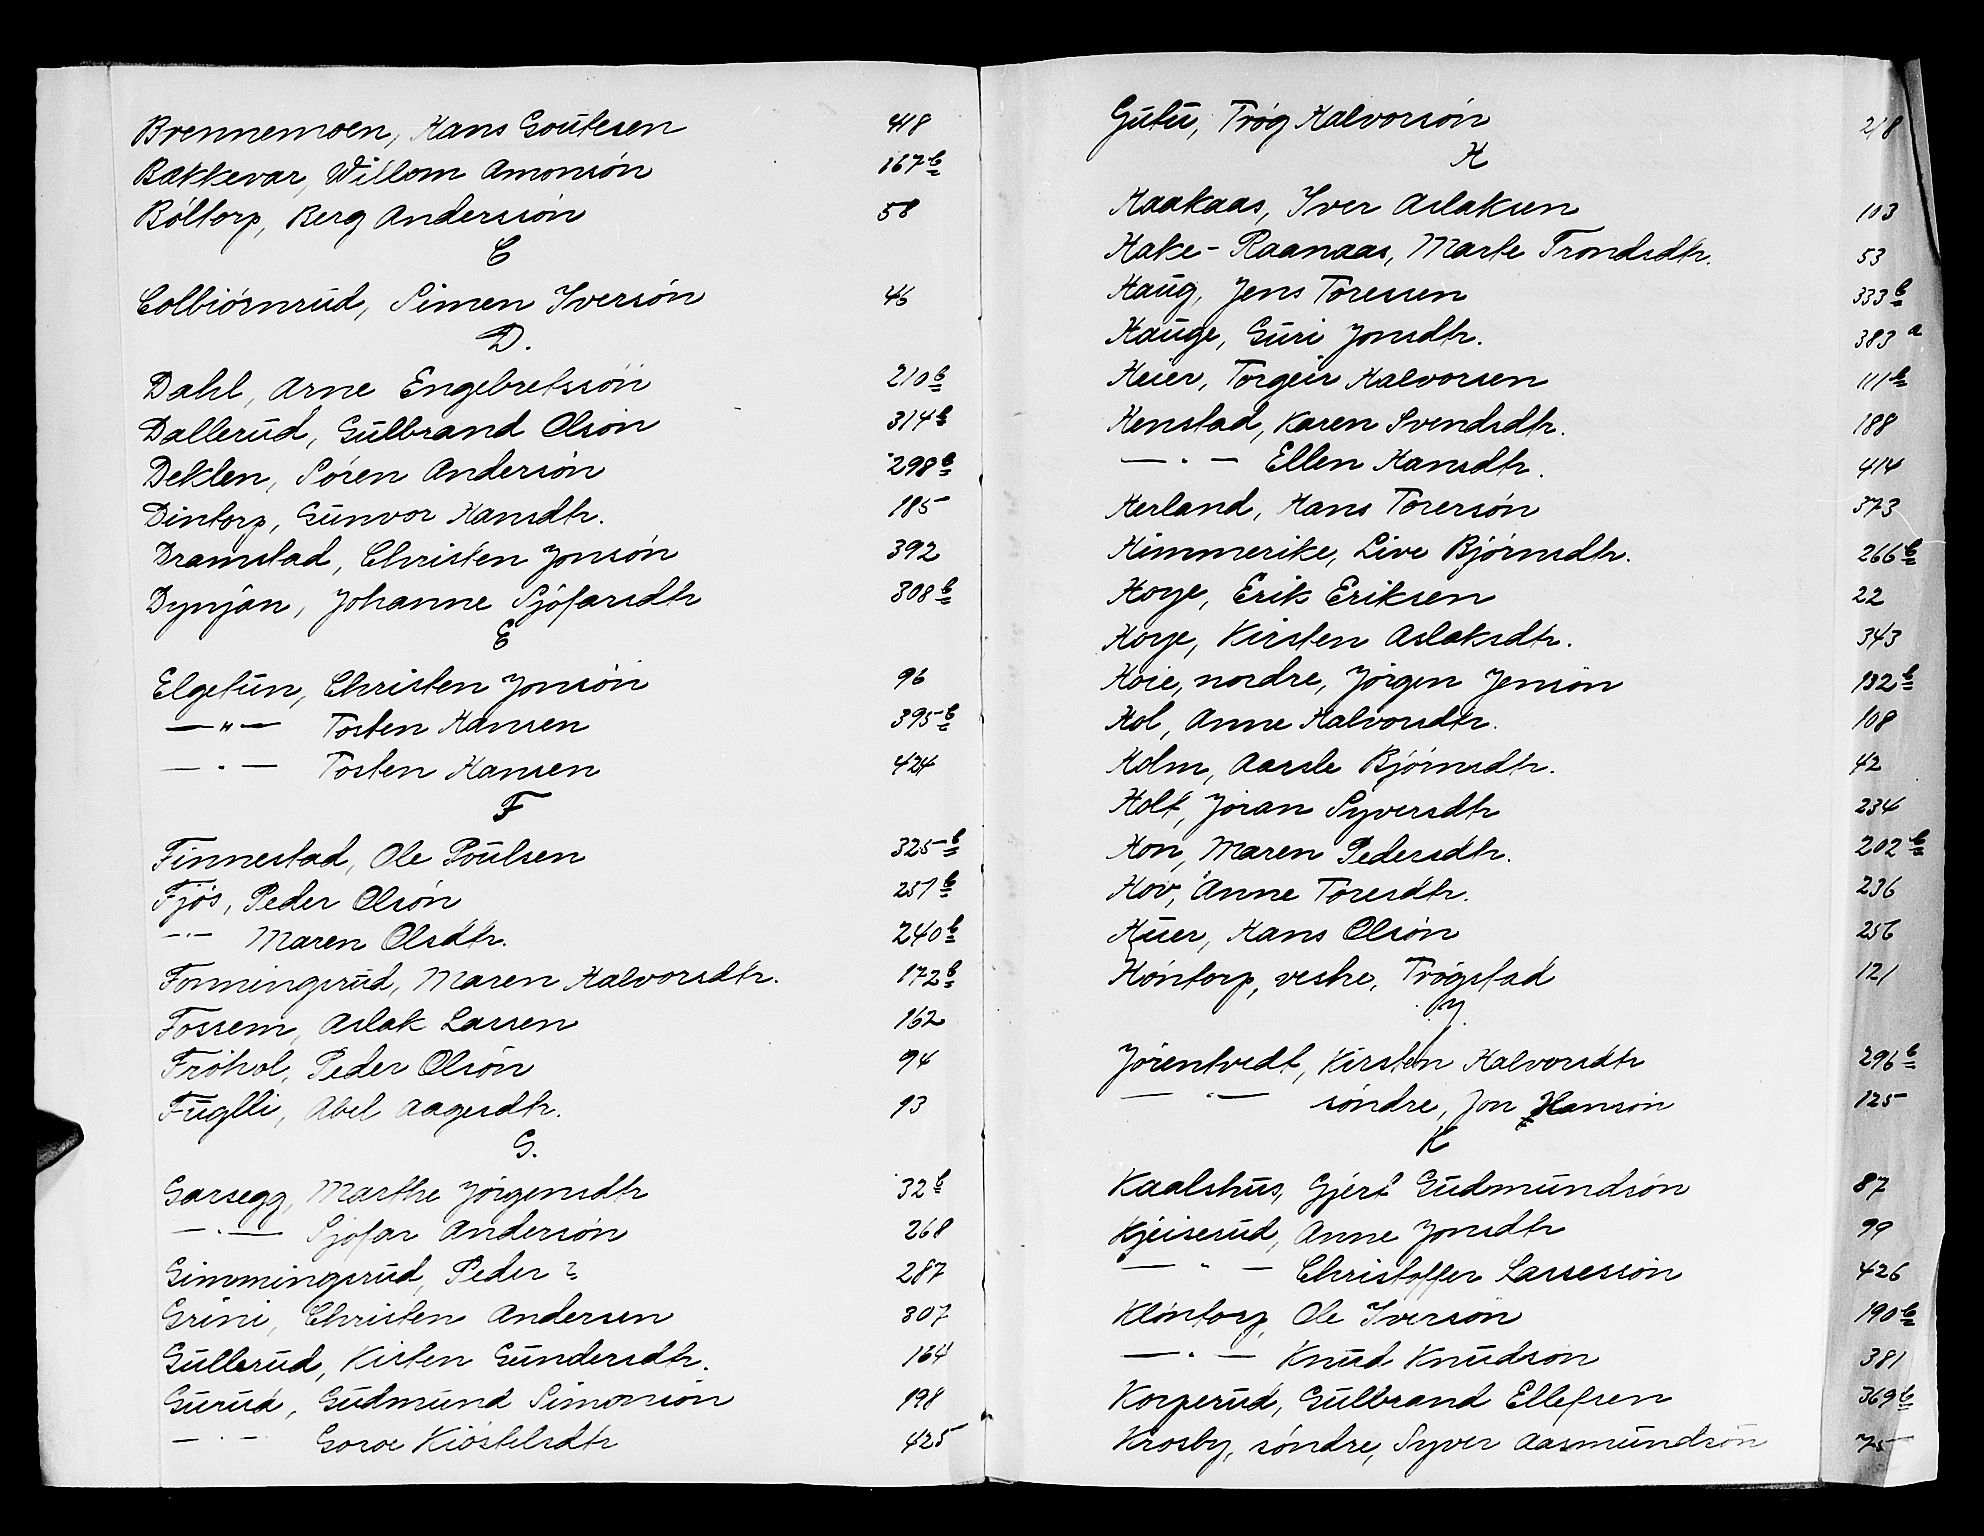 Brennemoen, Hans Goutesen 418
Bakkevar, Willom Amonsón 167b
Bóltorp, Berg Anderssón 58
C
Colbiórnrud, Simen Iversón 46
D.
Dahl, Arne Engebretssón 210b
Dallerud, Gulbrand Olsón 314b
Deklen, Sóren Andersón 298b
Dintorp, Gunvor Hansdtr. 185
Dramstad, Christen Jonsón 392
Dynján, Johanne Sjófarsdtr 308b
E
Elgetun, Christen Jonsón 96
—„— Tosten Hansen 395b
— . — Tosten Hansen 424
F
Finnestad, Ole Poulsen 325b
Fjós, Peder Olsón 251b
— . — Maren Olsdtr. 240b
Fonningsrud, Maren Halvorsdtr. 172b
Fossem, Aslak Lassen 162
Fróhol, Peder Olsón 94
Fuglli, Abel Aagesdtr. 93
G.
Garsegg, Marthe Jórgensdtr 32b
— . — Sjófar Andersón 268
Gimmingsrud, Peder ? 287
Grini, Christen Andersen 307
Gullerud, Kisten Gundersdtr. 164
Gurud, Gudmund Simonsón 198
— . — Goroe Kióstelsdtr 425
Gutu, Tróg Halvorsón 218
H
Haakaas, Iver Aslaksen 103
Hake-Raanaas, Marte Trondsdtr. 53
Haug, Jens Toressen 333b
Hauge, Guri Jonsdtr. 383a
Heier, Torgeir Halvorsen 111b
Henstad, Karen Svendsdtr. 188
— . — Ellen Hansdtr. 414
Herland, Hans Torersón 373
Himmerike, Live Bjórnsdtr. 266b
Hoye, Erik Eriksen 22
Hoye, Kirsten Aslaksdtr. 343
Hoie, nordre, Jórgen Jensón 132b
Hol, Anne Halvorsdtr. 108
Holm, Aasle Bjórnsdtr. 42
Holt, Jóran Syversdtr 234
Hon, Maren Pedersdtr. 202b
Hov, Anne Toresdtr. 236
Huer, Hans Olsón 256
Hóntorp, vestre, Trógstad 121
J.
Jórentvedt, Kirsten Halvorsdtr 296b
— . — sóndre, Jon Hansón 125
K
Kaalshus, Gjert Gudmundsón 87
Kjeiserud, Anne Jonsdtr 99
— „ — Christoffer Lassessón 426
Klóntorp, Ole Iversón 190b
— . — Knud Knudsón 381
Korperud, Gulbrand Ellefsen 369b
Krosby, sóndre, Syver Aasmundsón 75